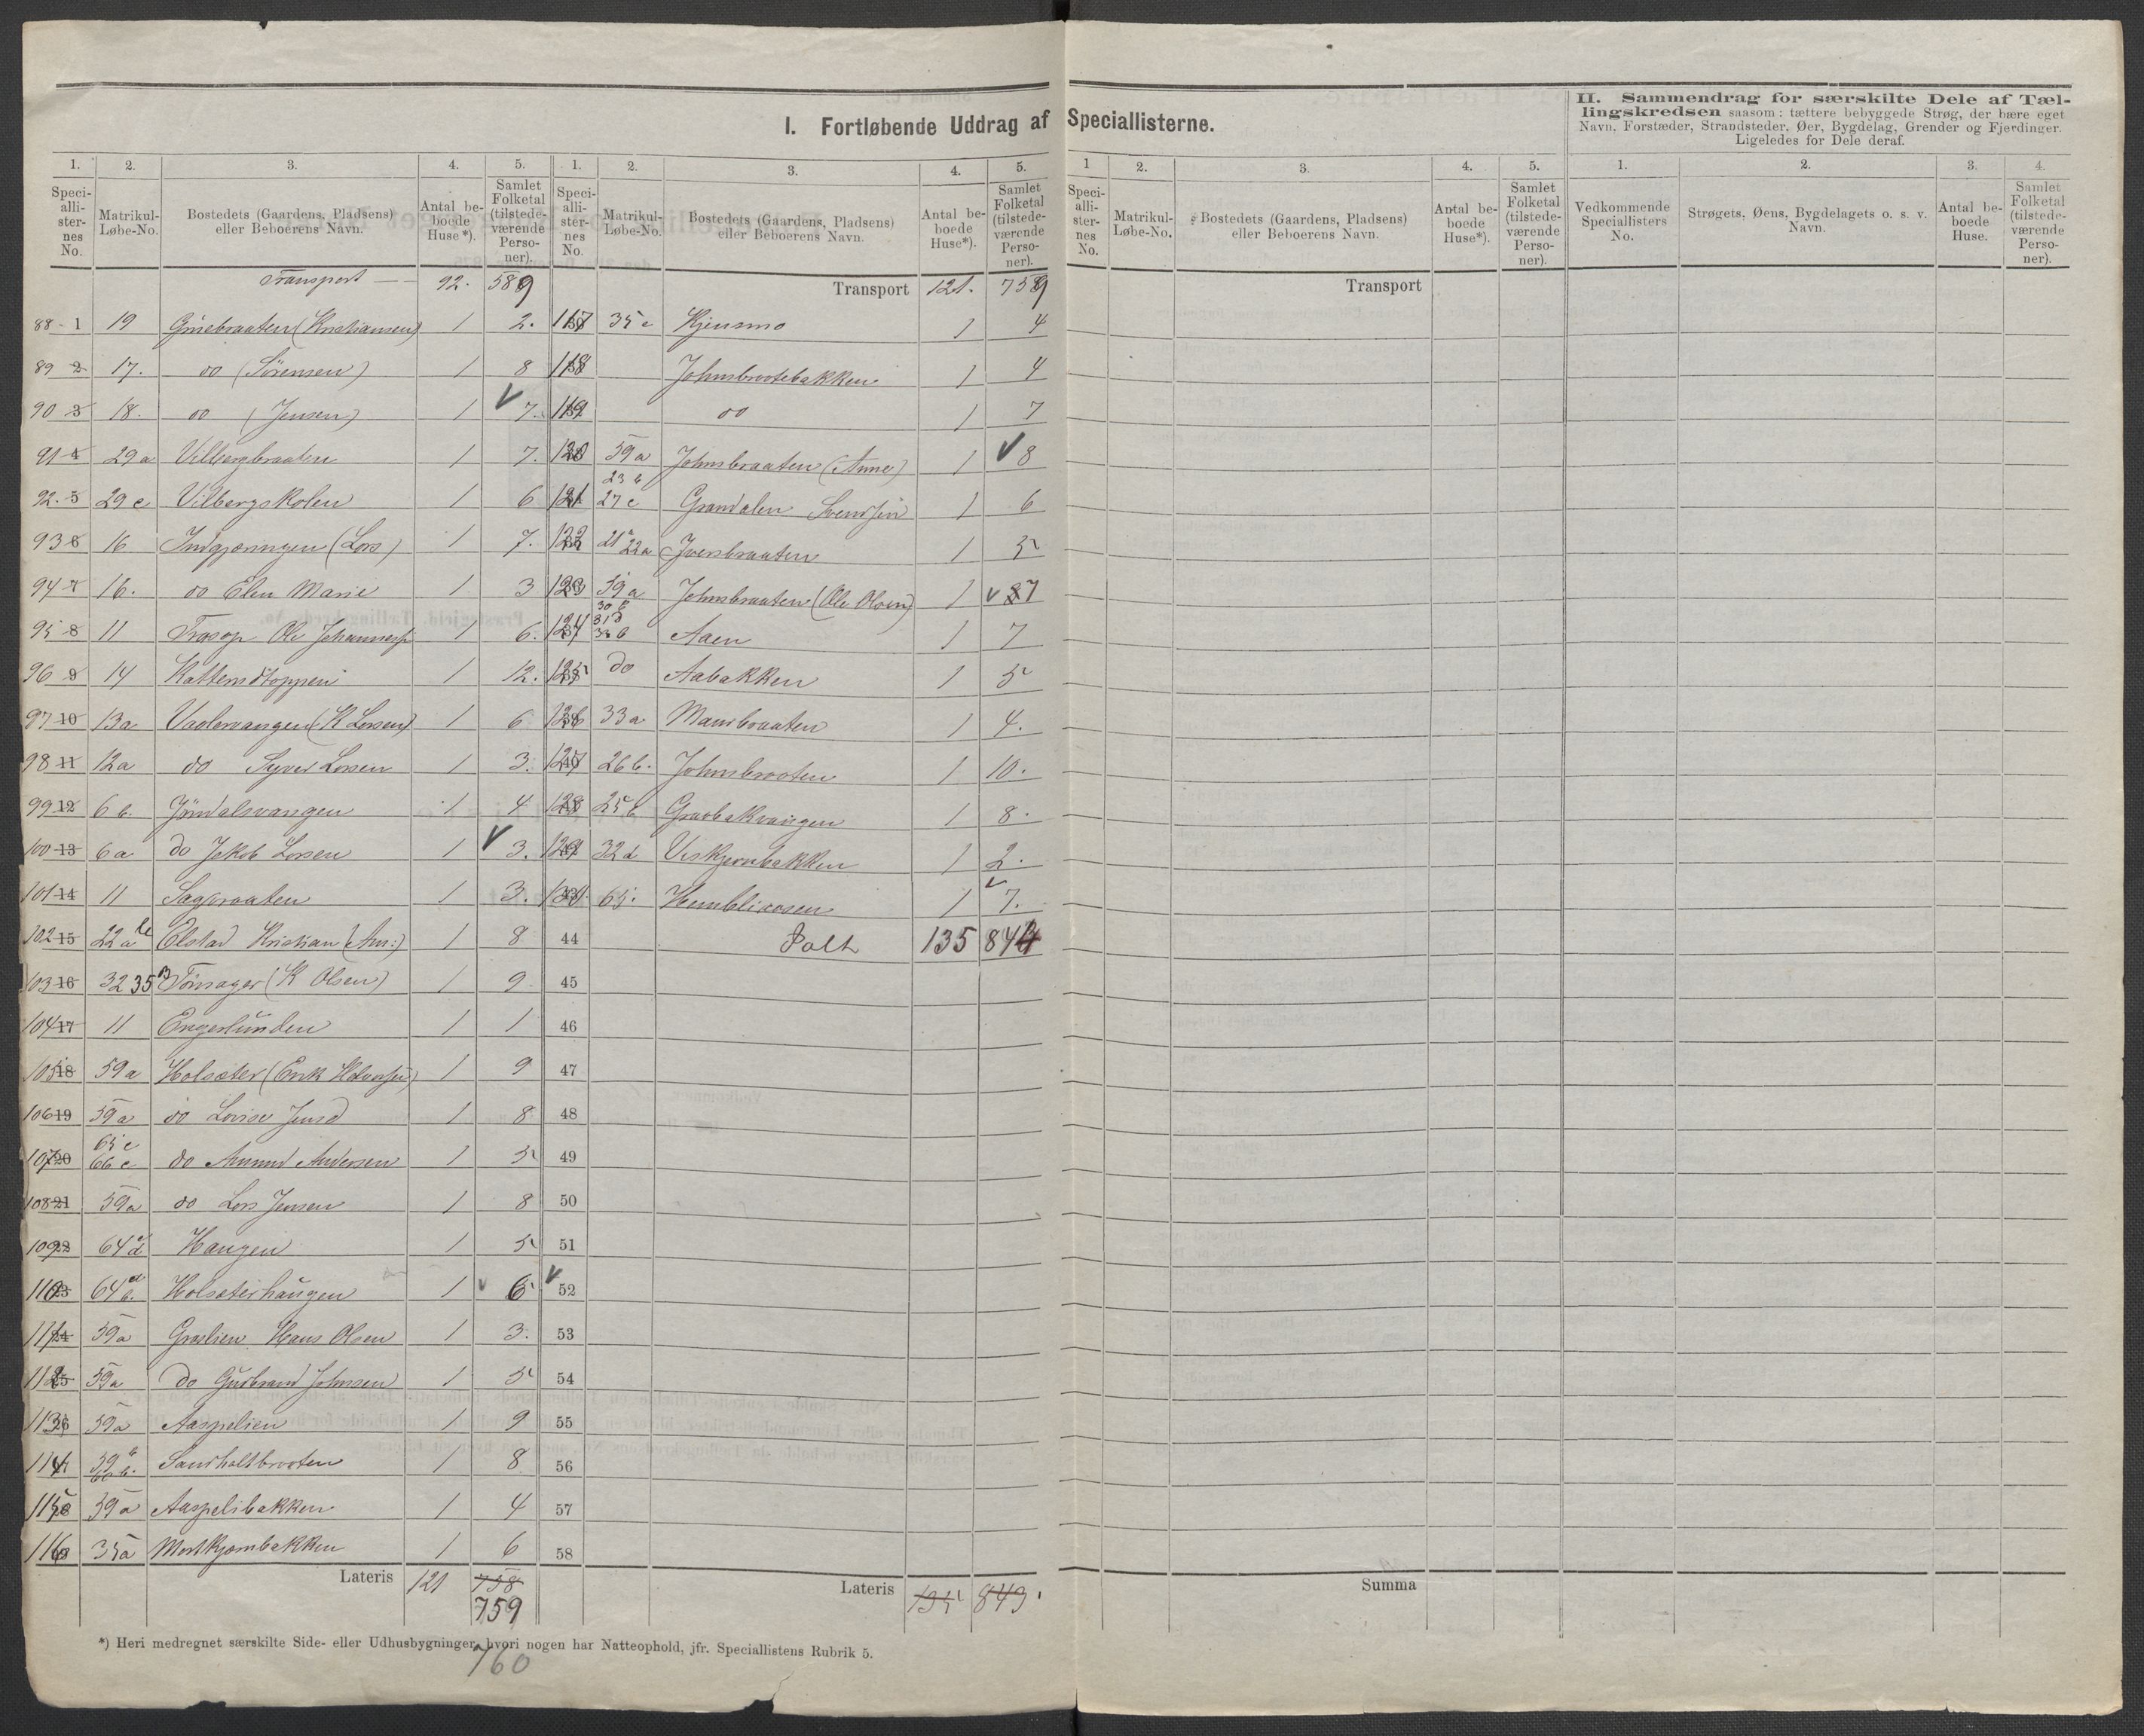 I. Fortløbende Uddrag af Speciallisterne.
II. Sammendrag for særskilte Dele af Tæl-
lingskredsen saasom: tættere bebyggede Strøg, der bære eget
Navn, Forstæder, Strandsteder, Øer, Bygdelag, Grender og Fjerdinger.
Ligeledes for Dele deraf.
1. 2. 3. 4. 5. 1. 2. 3. 4. 5. 1 2. 3. 4. 5. 1. 2. 3. 4.
Speci-alli-ster-nes No. Matrikul-Løbe-No. Bostedets (Gaardens, Pladsens) eller Beboerens Navn. Antal be-boede Huse*). Samlet Folketal (tilstede-værende Perso-ner).
Speci-alli-ster-nes No. Matrikul-Løbe-No. Bostedets (Gaardens, Pladsens) eller Beboerens Navn. Antal be-boede Huse*). Samlet Folketal (tilstede-værende Perso-ner).
Speci-alli-ster-nes No. Matrikul-Løbe-No. Bostedets (Gaardens, Pladsens) eller Beboerens Navn. Antal be-boede Huse*). Samlet Folketal (tilstede-værende Perso-ner).
Vedkommende Speciallisters No. Strøgets, Øens, Bygdelagets o. s. v. Navn. Antal be-boede Huse. Samlet Folketal (tilstede-værende Perso-ner).
Transport 92. 589
88 1 19 (Kristiansen) 1 2.
89 2 17. do (Sörensen) 1 8
90 3 18. do (Jensen) 1 7.
91 4 29a Vilbergbraaten 1 7.
92. 5 29c Vilbergskolen 1 6
93 6 16 Indgjæringen (Lars) 1 7.
94 7 16. do Elen Marie 1 3
95 8 11 Trøsop Ole Johanness 1 6.
96 9 14 Kattendtoppen 1 12.
97 10 13a (K Larsen) 1 6
98 11 12a do Syver Larsen 1 3.
99 12 6b. Jöndalsvangen 1 4
100 13 6a do Jakob Larsen 1 3.
101 14 11 Sagbraaten 1 3.
102 15 22a Elstad Kristian (Am:) 1 8
103 16 32 35 Tönsager (K Olsen) 1 9
104 17 11 Engerlunden 1 1
105 18 59a Holsæter (Erik Halvorsen) 1 9
106 19 59a do Lovise Jensd 1 8
107 20 65c 66c do Amund Andersen 1 5
108 21 59a do Lars Jensen 1 8
109 22 64d Haugen 1 5
110 23 64b. Holsæterhaugen 1 6
111 24 59a Graslien Hans Olsen 1 3.
112 25 59a do Gudbrand Johnsen 1 5
113 26 59a Aaspelien 1 9
114 59b 60b. Sandholtbroten 1 8
115 59a Aaspelibakken 1 4
116 35a Mortkjærnbakken 1 6
Lateris 121 758
759
760
Transport 121. 759
117 35c Kjensmo 1 4
118 Johnsbrotebakken 1 4
119 do 1 7
120 59a Johnsbraaten (Anne) 1 8
121 23b 27c Grandalen Svendsen 1 6
122 21 22a Iversbraaten 1 5
123 59a Johnsbraaten (Ole Olsen) 1 7
124 30b 31d 32b Aaen 1 7
125 do Aabakken 1 5
126 33a Mansbraaten 1 4.
127 26b. Johnsbroten 1 10.
128 25b 1 8.
129 32d Veskjernbakken 1 2.
130 65. 1 7.
44 135 844
45
46
47
48
49
50
51
52
53
54
55
56
57
58
Lateris 135 843
Transport
Summa
*) Heri medregnet særskilte Side- eller Udhusbygninger, hvori nogen har Natteophold, jfr. Speciallistens Rubrik 5.